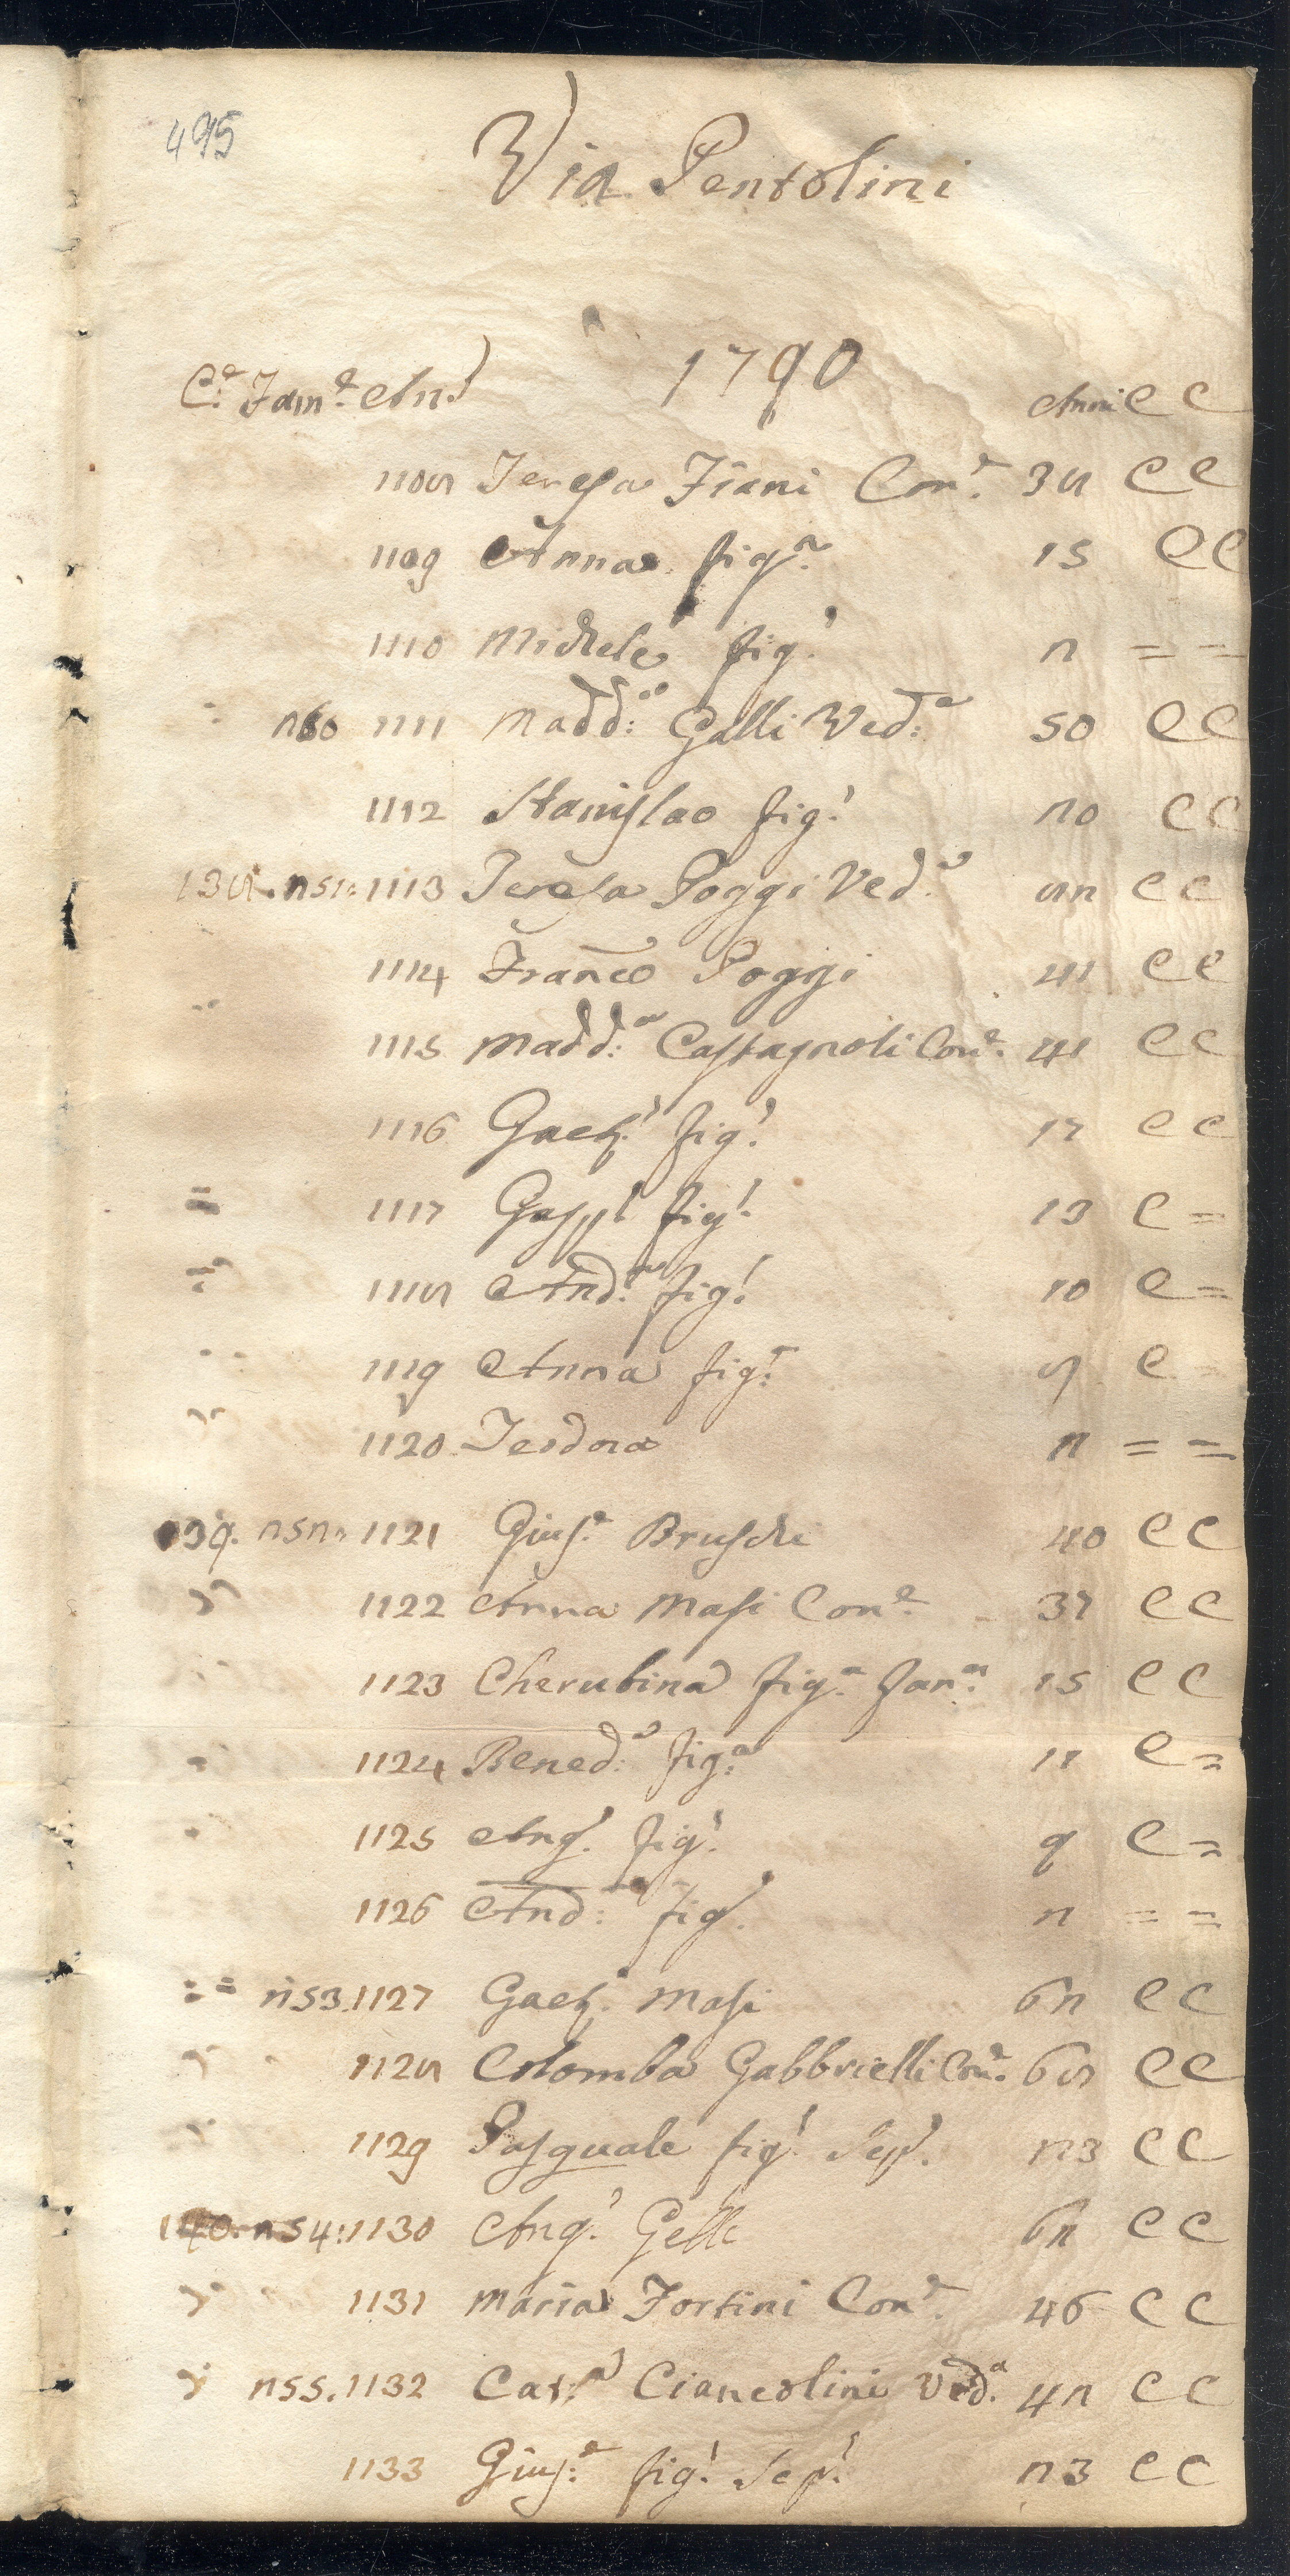 495
Via Pentolini
1790
C.e Fam.e An.! Anni C C
1108 Teresa Fiani Con.e 38 C C
1109 Anna fig.a 15 C C
1110 Michele fig.! 2 = =
250 1111 Madd:a Galli Ved:a 50 C C
1112 Stanislao fig.! 20 C C
138. 251: 1113 Teresa Poggi Ved.a 82 C C
1114 Franco Poggi 41 C C
1115 Madd:a Castagnoli Con.e 41 C C
1116 Gaet.! fig.! 17 C C
= 1117 Gasp.! fig.! 13 C =
1118 And.a fig.! 10 C =
1119 Anna fig.a 8 C
1120 Teodora 2 = =
139. 252: 1121 Gius.e Bruschi 40 C C
1122 Anna Masi Con.e 37 C C
1123 Cherubina fig.a 15 C C
1124 Bened:a fig.a 11 C =
1125 Ang.! fig.! 9 C =
1126 And:a fig.! 2 = =
= = 253. 1127 Gaet.! Masi 62 C C
1128 Colomba Gabbrielli Con.e 68 C C
1129 Pasquale fig.! Sep.! 23 C C
140. 254: 1130 Ang.! Gelli 62 C C
1131 Maria Fortini Con.e 46 C C
255. 1132 Cat.a Ciancolini Ved.a 42 C C
1133 Gius:e fig.! Sep.! 23 C C